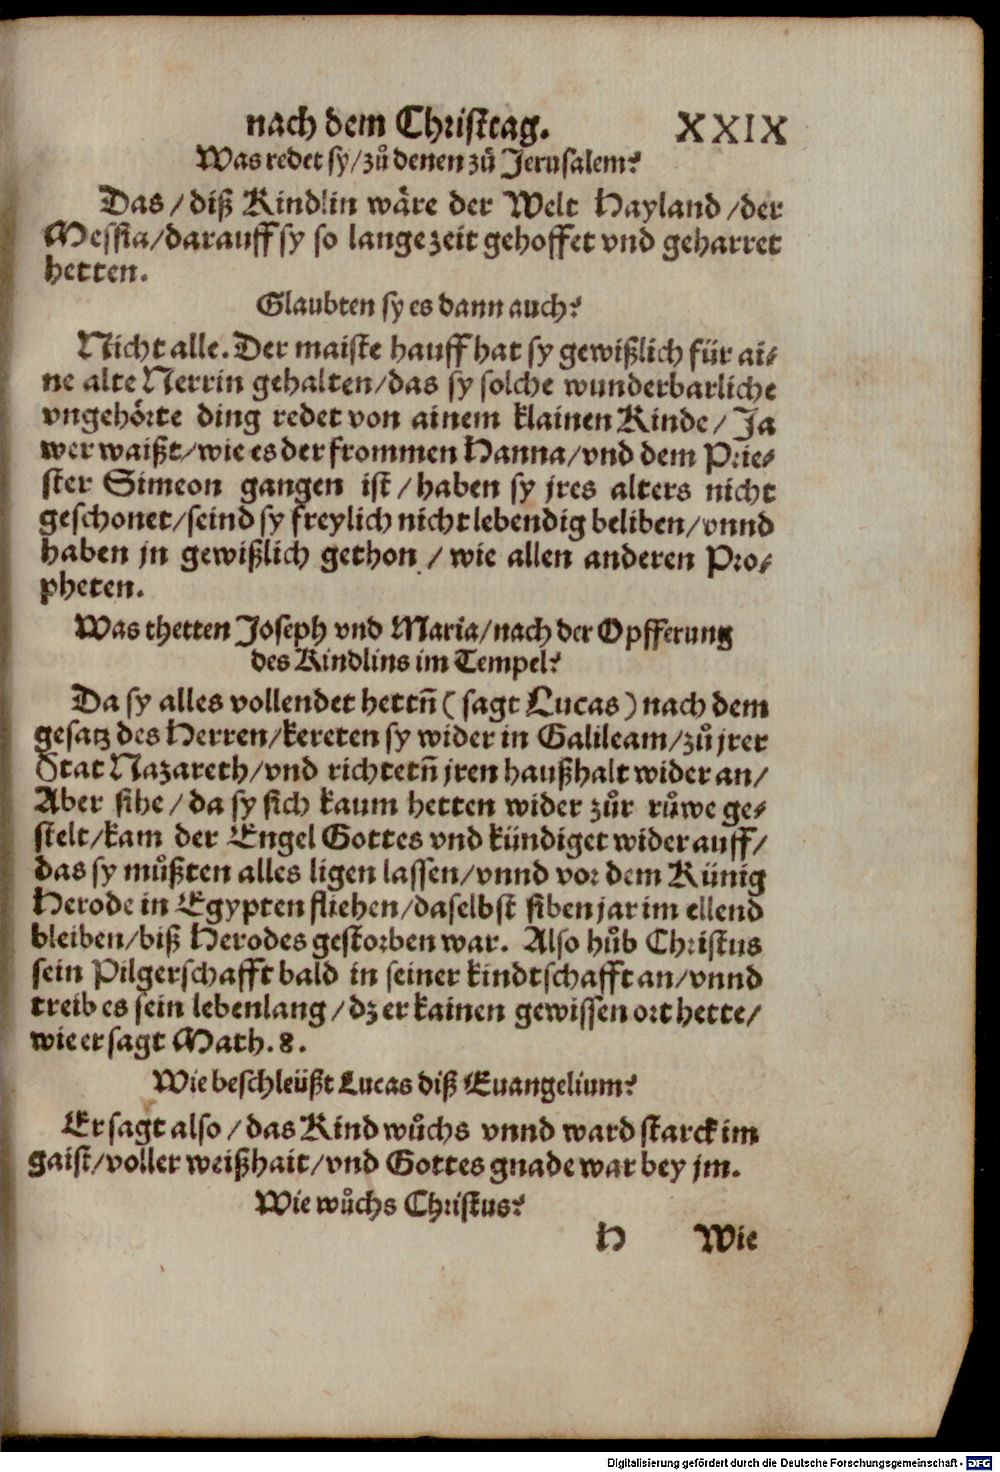 nach dem Christtag. XXIX
Was redet sy/zů denen zů Jerusalem?
Das/diß Kindlin wäre der Welt Hayland/der
Messia/darauff sy so lange zeit gehoffet vnd geharret
hetten.
Glaubten sy es dann auch?
Nicht alle. Der maiste hauff hat sy gewißlich für ai-
ne alte Nerrin gehalten/das sy solche wunderbarliche
vngehörte ding redet von ainem klainen Kinde/Ja
wer waißt/wie es der frommen Hanna/vnd dem Prie-
ster Simeon gangen ist/haben sy jres alters nicht
geschonet/seind sy freylich nicht lebendig beliben/vnnd
haben jn gewißlich gethon/wie allen anderen Pro-
pheten.
Was thetten Joseph vnd Maria/nach der Opfferung
des Kindlins im Tempel?
Da sy alles vollendet hettñ (sagt Lucas) nach dem
gesatz des Herren/kereten sy wider in Galileam/zů jrer
Stat Nazareth/vnd richtetñ jren haußhalt wider an/
Aber sihe/da sy sich kaum hetten wider zůr růwe ge-
stelt/kam der Engel Gottes vnd kündiget wider auff/
das sy můßten alles ligen lassen/vnnd vor dem Künig
Herode in Egypten fliehen/daselbst siben jar im ellend
bleiben/biß Herodes gestorben war. Also hůb Christus
sein Pilgerschafft bald in seiner kindtschafft an/vnnd
treib es sein lebenlang/dz er kainen gewissen ort hette/
wie er sagt Math. 8.
Wie beschleüßt Lucas diß Euangelium?
Er sagt also/das Kind wůchs vnnd ward starck im
gaist/voller weißhait/vnd Gottes gnade war bey jm.
Wie wůchs Christus?
H Wie
Digitalisierung gefördert durch die Deutsche Forschungsgemeinschaft - DFG